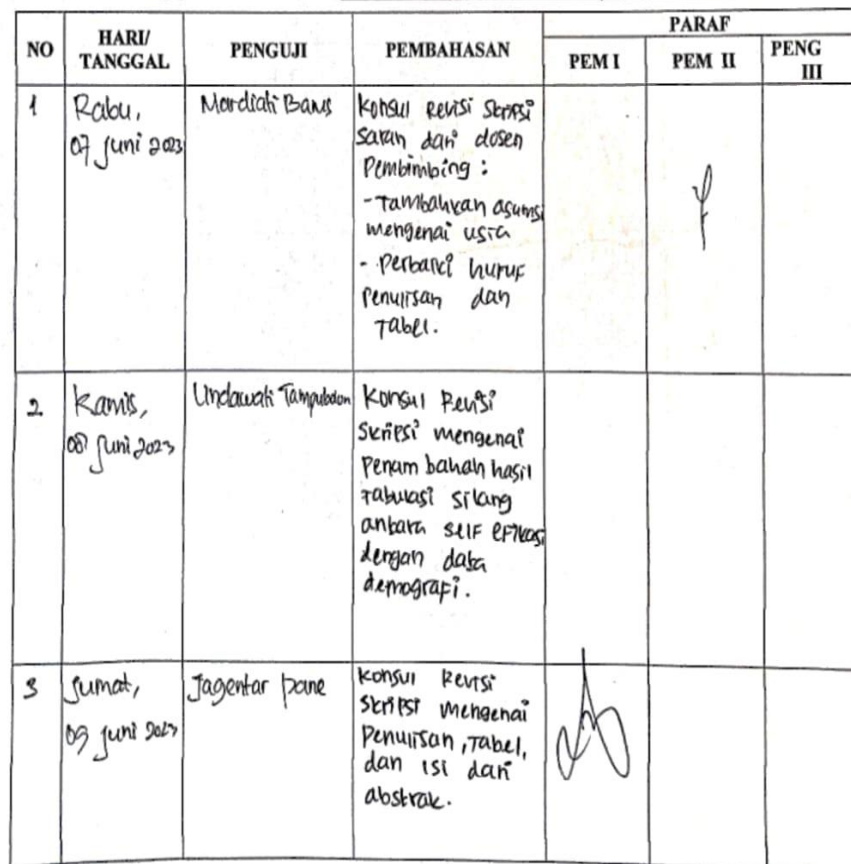 NO HARI/ TANGGAL PENGUJI PEMBAHASAN PARAF
PEM I PEM II PENG III
1 Rabu, Mardiati Barus Konsul Revisi Skripsi
07 Juni 2023 saran dari dosen
Pembimbing :
- Tambahkan asumsi
mengenai usia
- Perbaiki huruf
Penulisan dan
Tabel.
2 Kamis, Lindawati Tampubolon Konsul Revisi
08 Juni 2023 Skripsi mengenai
Penambahan hasil
Tabulasi silang
antara self efikasi
dengan data
demografi.
3 Jumat, Jagentar Pane Konsul Revisi
09 Juni 2023 Skripsi mengenai
Penulisan, Tabel,
dan isi dari
abstrak.